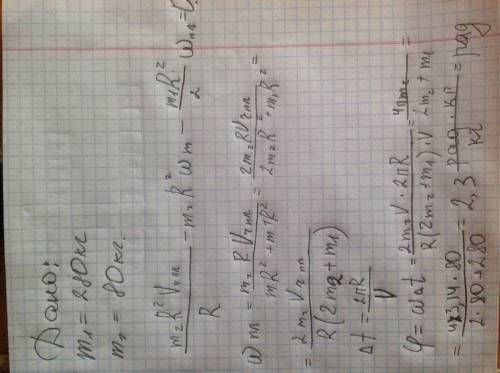 Дано:
m₁ = 280 кг
m₂ = 80 кг.
m₂R²V₂пл / R − m₂R²ωпл − m₁R² / 2 ωпл =
ωпл = m₂RV₂пл / mR² + m1R² = 2m₂RV₂пл / 2m₂R² + m₁R² =
= 2m₂V₂пл / R(2m2 + m₁)
Δt = 2πR / V
φ = ωΔt = 2m₂V · 2πR / R(2m₂ + m₁) · V = 4πm₂ / 2m₂ + m₁ =
= 4×3,14 · 80 / 2 · 80 + 280 = 2,3 рад · кг / кг = рад